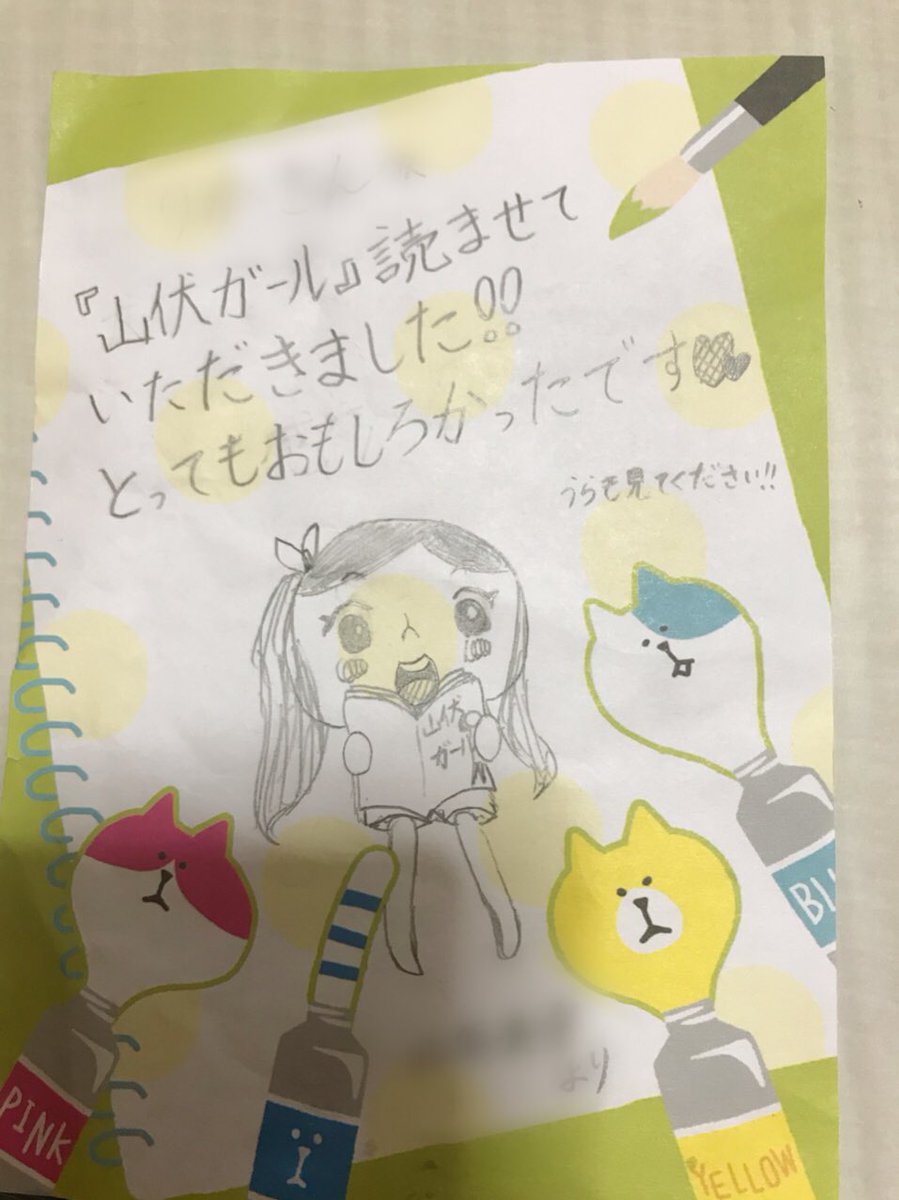 『山伏ガール』読ませて
いただきました!!
とってもおもしろかったです
うらも見てください!!
山伏
ガール
BL
PINK
YELLOW
より